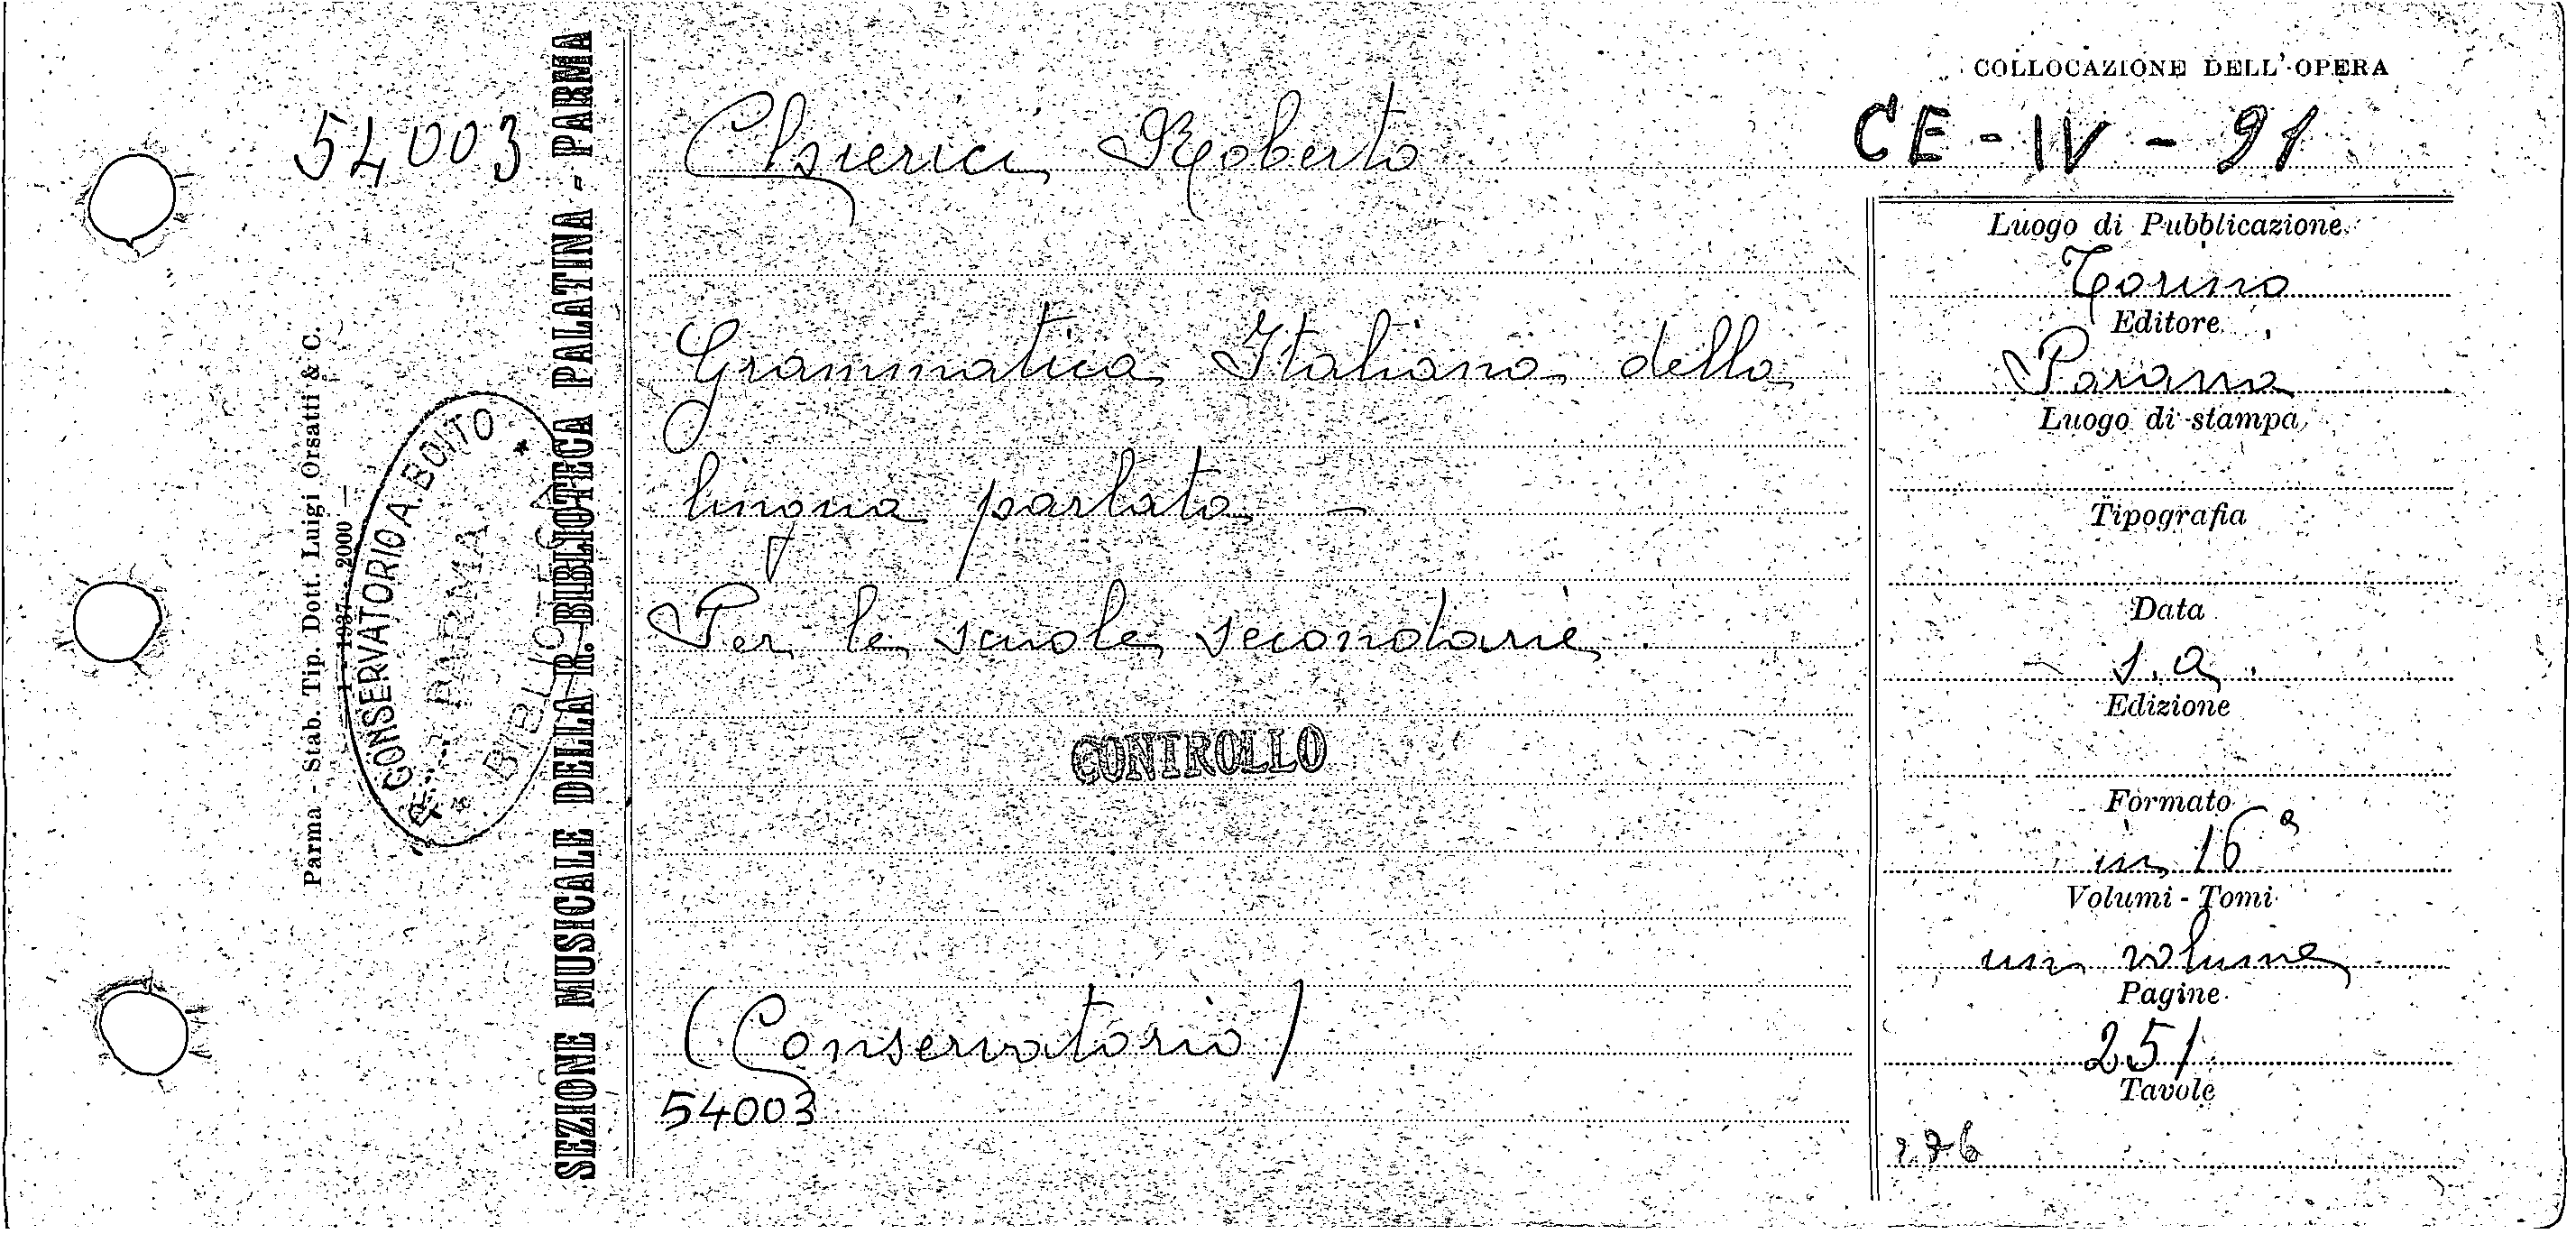 COLLOCAZIONE DELL'OPERA
CE - IV - 91
54003
Chierici Roberto
Grammatica Italiana della
lingua parlata -
Per le scuole secondarie.
CONTROLLO
(Conservatorio)
54003
Luogo di Pubblicazione
Torino
Editore
Parava
Luogo di stampa
Tipografia
Data
s. a.
Edizione
Formato
in 16°
Volumi - Tomi
un volume
Pagine
251
Tavole
SEZIONE MUSICALE DELLA R. BIBLIOTECA PALATINA - PARMA
Parma - Stab. Tip. Dott. Luigi Orsatti & C.
1 - 1937 - 2000 —
CONSERVATORIO A. BOITO
PARMA
BIBLIOTECA